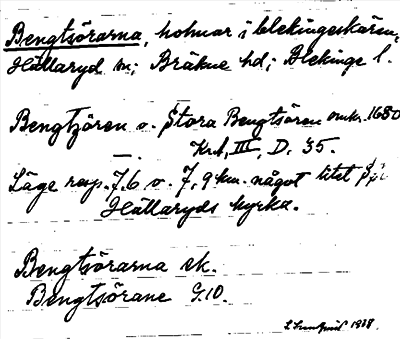 Bengtsörarna, holmar i blekingeskären,
Hällaryd sn; Bräkne hd; Blekinge l.
Bengtzören o. Stora Bengtsören omkr. 1680
KrA, III, D. 35.
Läge resp. 7,6 o. 7,9 km. något litet
Hällaryds kyrka.
Bengtsörarna ek.
Bengtsörane G.10.
1938